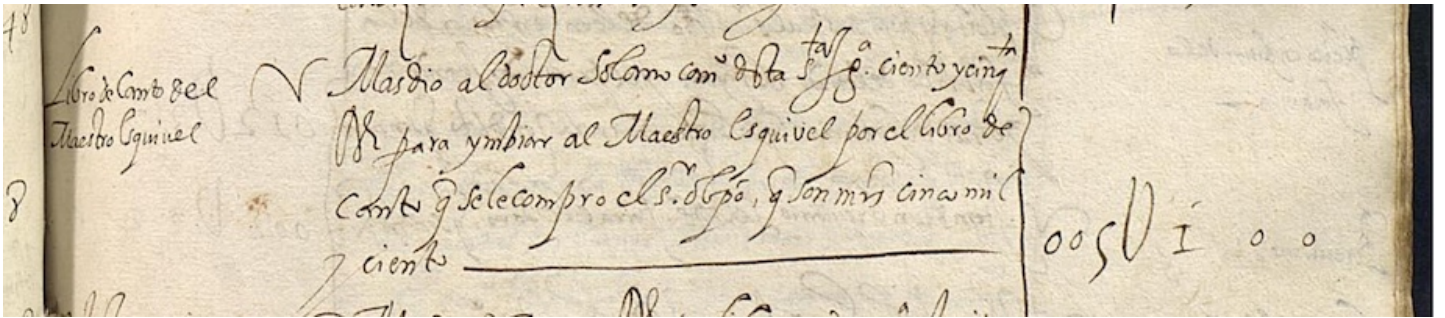 Libro de Canto del
Maestro Esquivel
V Mas dio al doctor Solano can.º dsta s.ta Ig.ª ciento y cinq.ta
RR para ymbiar al Maestro Esquivel por el libro de
canto q se le compro el s.r obpo, q son mrs cinco mil
y ciento
005U100